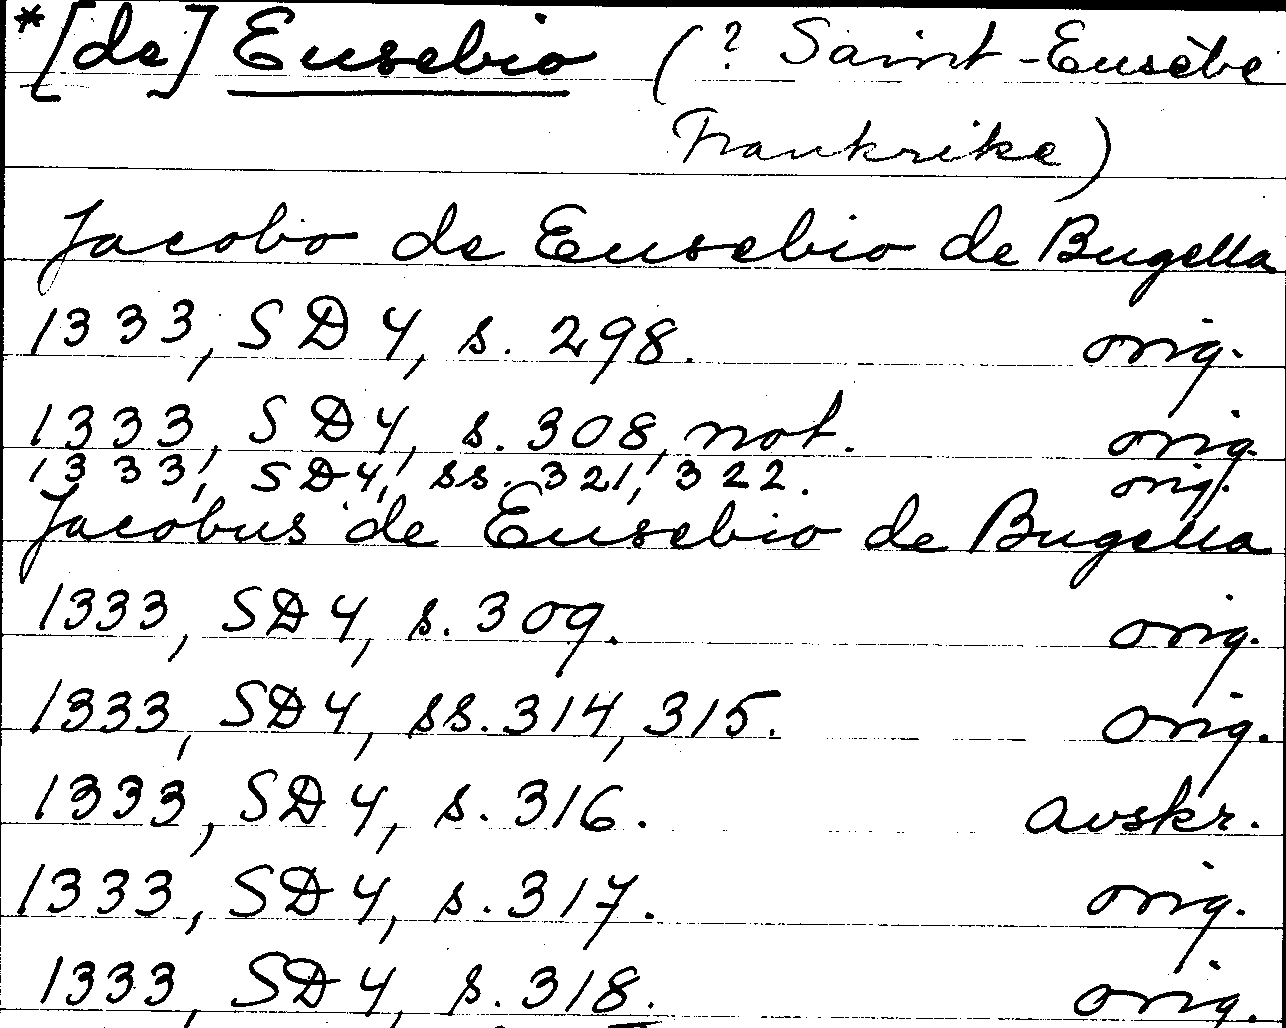 *[de] Eusebio (? Saint-Eusèbe
Frankrike)
Jacobo de Eusebio de Bugella
1333, SD 4, s. 298. orig.
1333, SD 4, s. 308, not. orig.
1333, SD 4, ss. 321, 322. orig.
Jacobus de Eusebio de Bugella
1333, SD 4, s. 309. orig.
1333, SD 4, ss. 314, 315. orig.
1333, SD 4, s. 316. avskr.
1333, SD 4, s. 317. orig.
1333, SD 4, s. 318. orig.